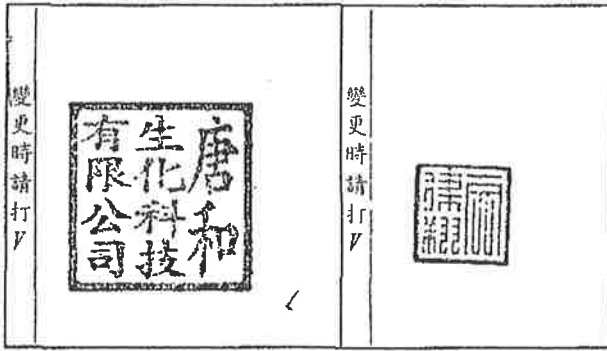 變更時請打V
唐和
生化科技
有限公司
變更時請打V